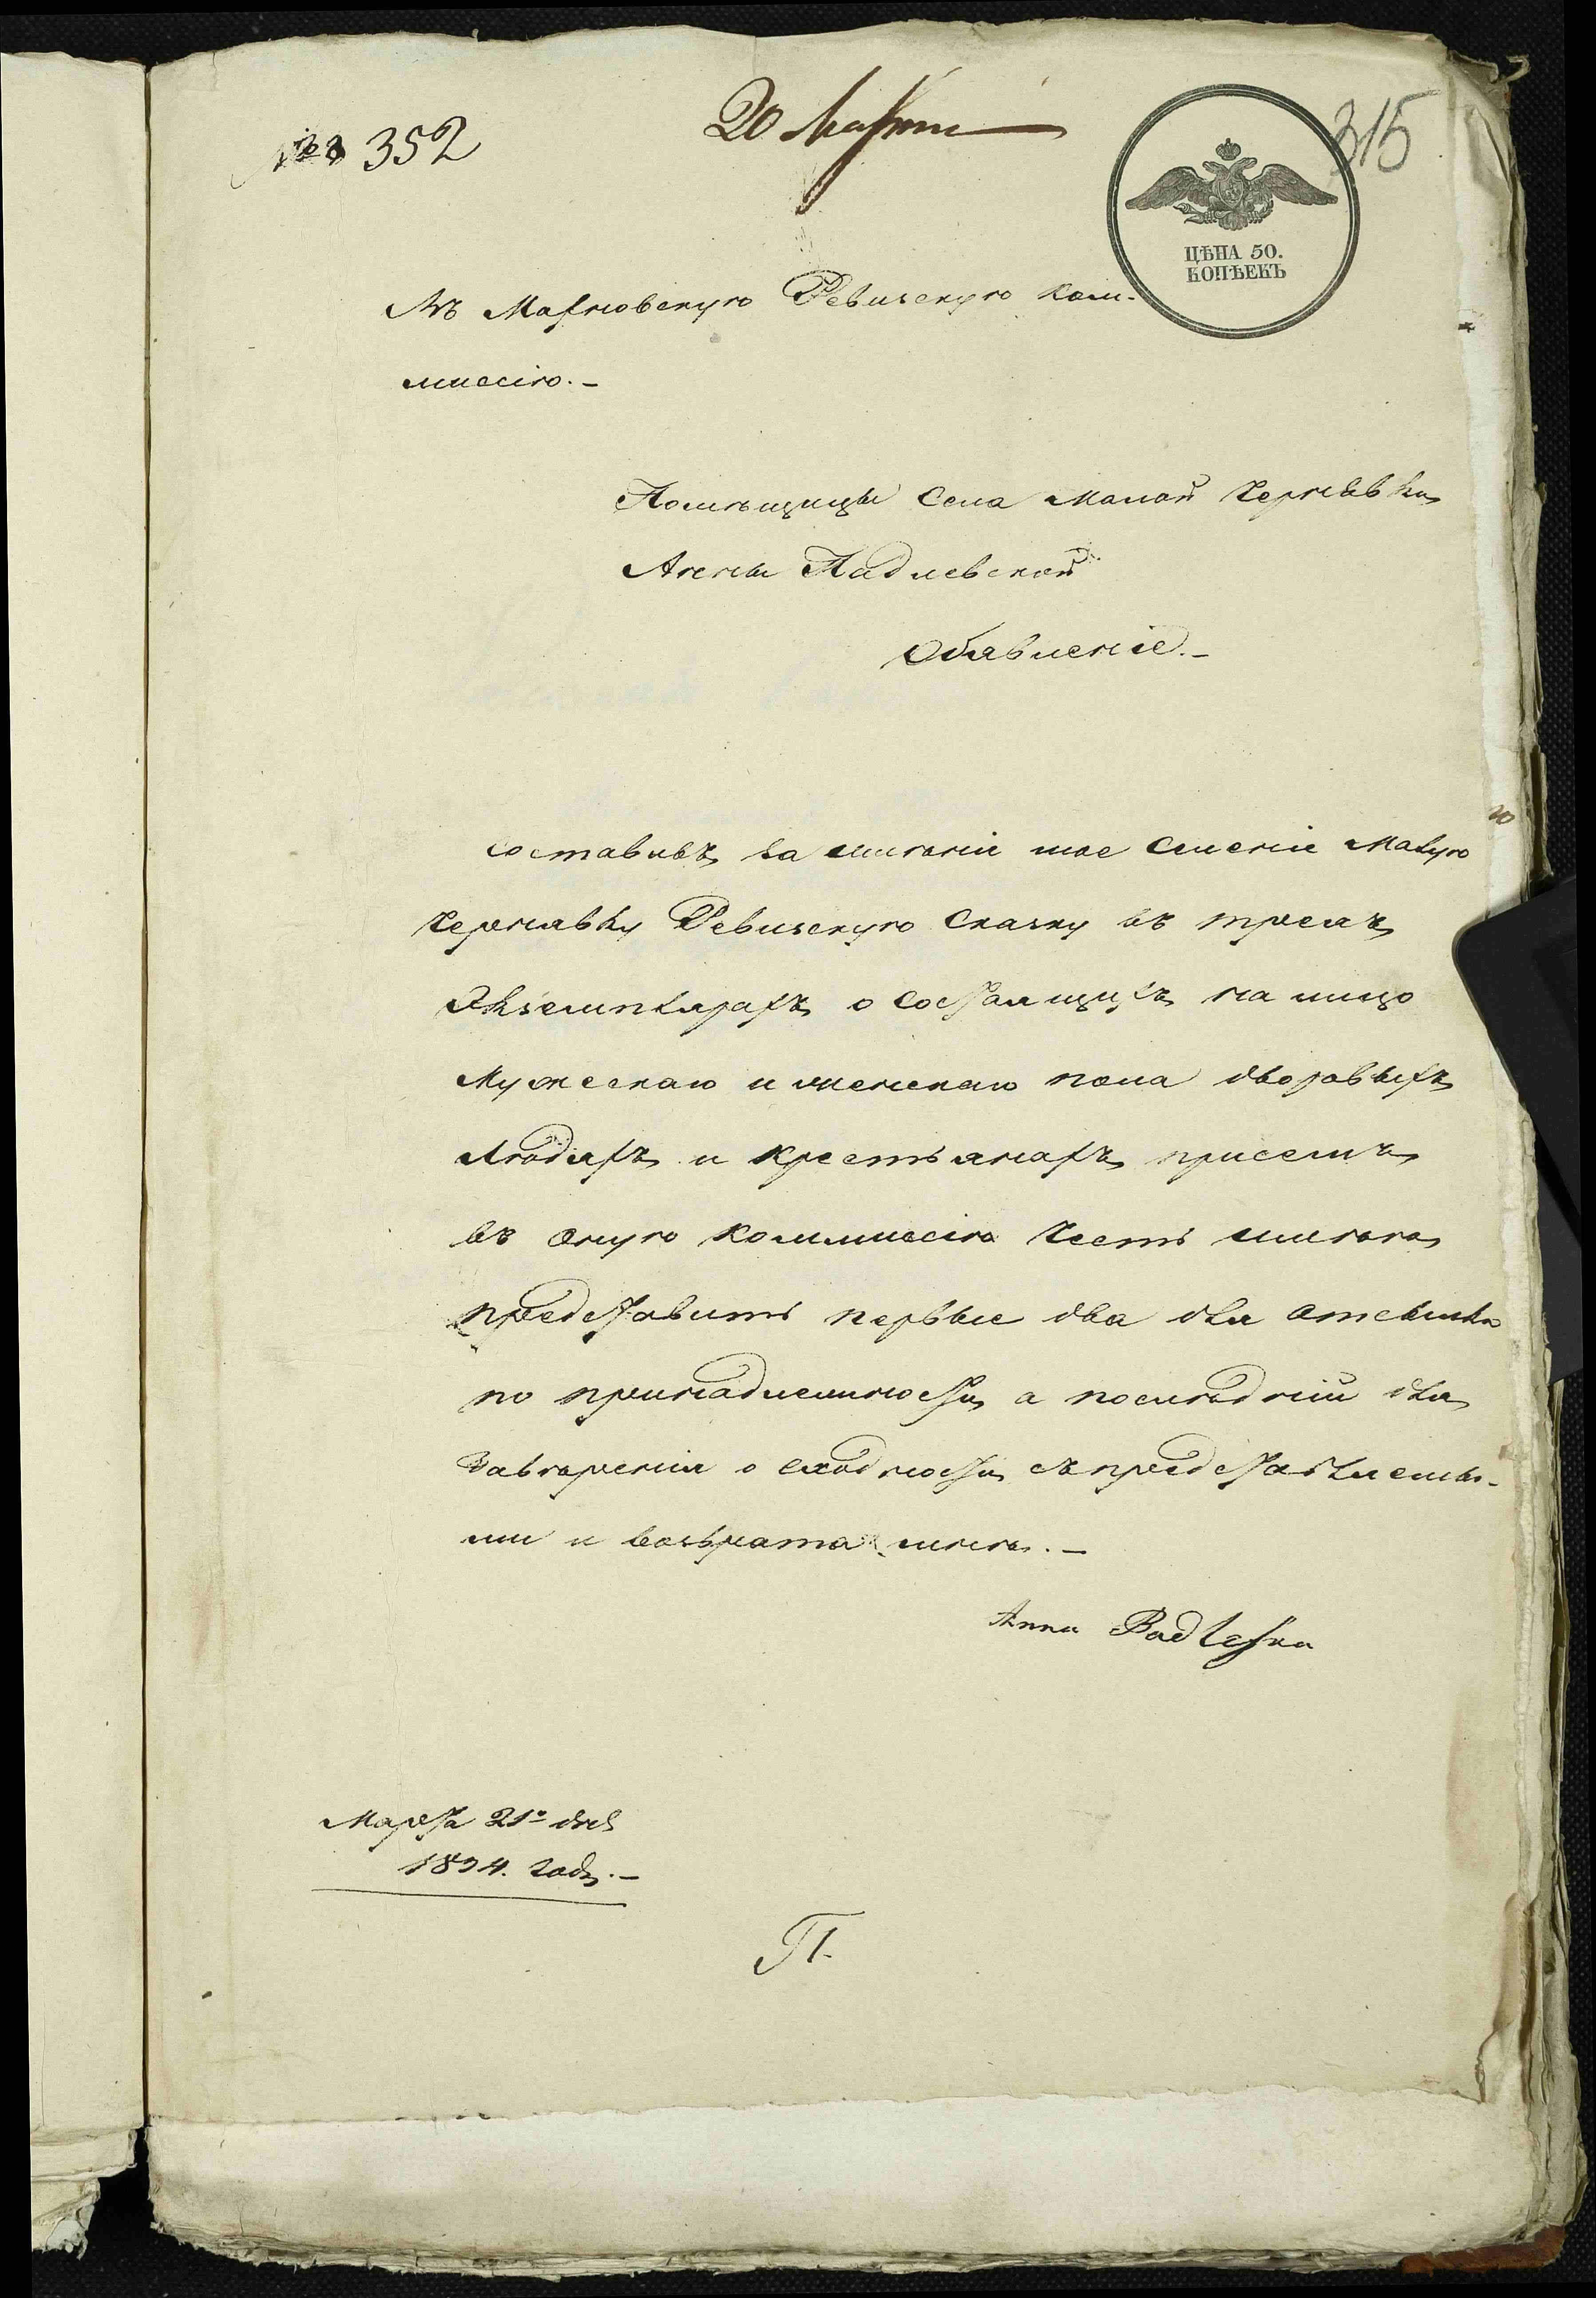 № 352
20 Марта
315
ЦѢНА 50.
КОПѢЕКЪ
Въ Махновскую Ревизскую Ком-
миссію.-
Помѣщицы Села Малой Чернявки
Анны Падлевской
Объявленіе.-
Составивъ на имѣніе мое Селеніе Малую
Чернявку Ревизскую Сказку въ трехъ
Экземплярахъ о Состоящихъ на лицо
Мужескаго и женскаго пола дворовыхъ
Людяхъ и крестьянахъ присемъ
въ оную Коммиссію Честь имѣю
представить первые два для отсылки
по принадлежности, а послѣдній для
Завѣренія о сходности съ представленны-
ми и возврата мнѣ.-
Anna Padleska
Марта 21º дня
1834. года.-
П.